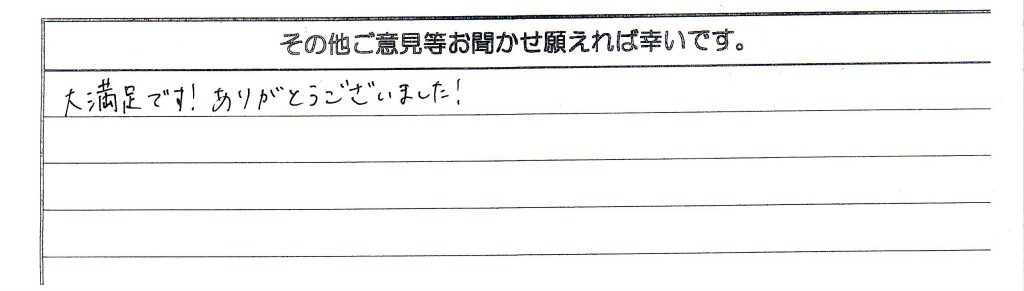 その他ご意見等お聞かせ願えれば幸いです。
大満足です!ありがとうございました!